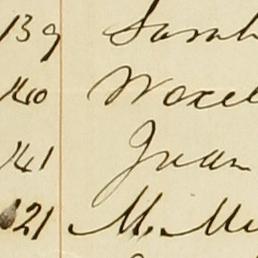 139 Sarah
140 Woxel
141 Juan
121 M. Mi